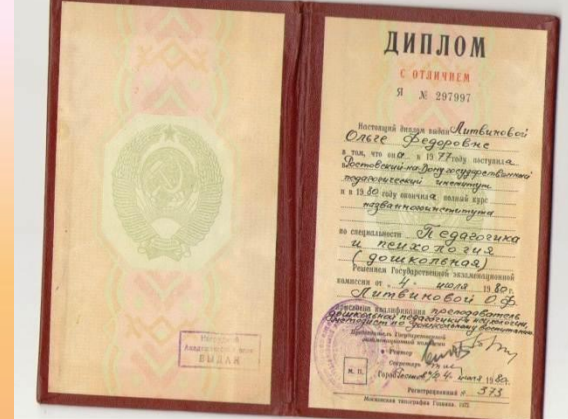 ДИПЛОМ
С ОТЛИЧИЕМ
Я № 297997
Настоящий диплом выдан Литвиновой
Ольге Федоровне
в том, что она в 1977 году поступила
в Ростовский-на-Дону государственный
педагогический институт
и в 1980 году окончила полный курс
названного института
по специальности Педагогика
и психология
(дошкольная)
Решением Государственной экзаменационной
комиссии от „4“ июля 1980г.
Литвиновой О.Ф.
присвоена квалификация преподаватель
дошкольной педагогики и психологии,
методист по дошкольному воспитанию
Председатель Государственной
экзаменационной комиссии
Ректор
Секретарь
М. П.
Город Ростов н/Д 4 июля 1980г.
Регистрационный № 573
Московская типография Гознака. 1975
ВЫДАН